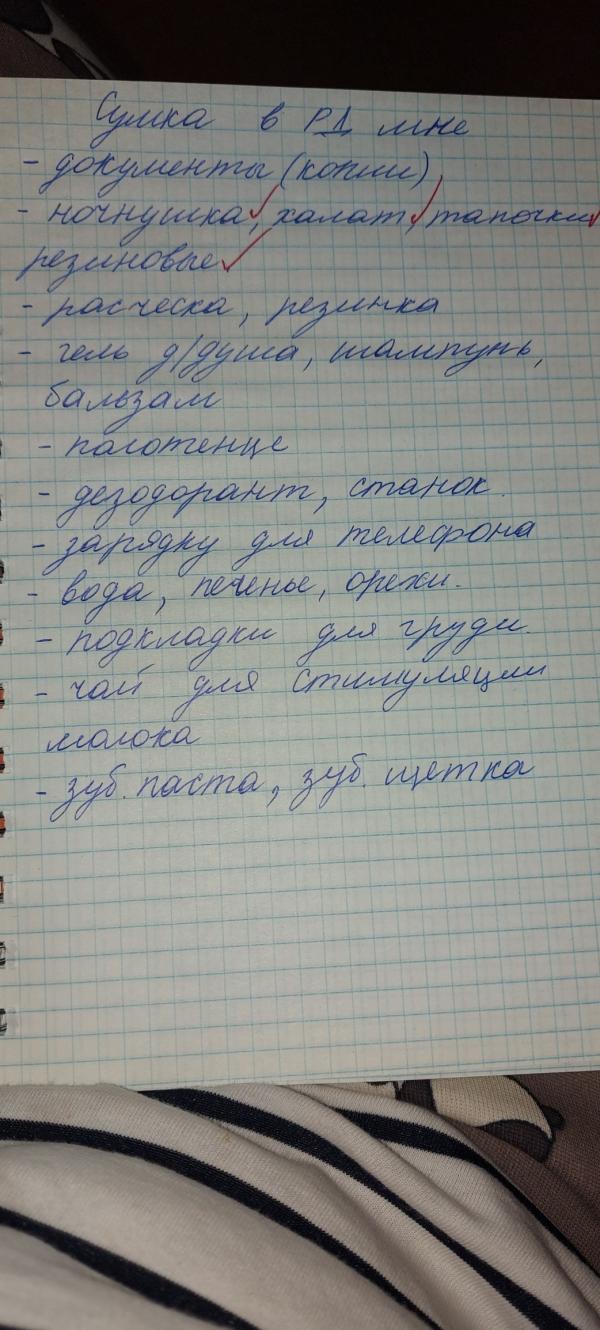 Сумка в РД мне
- документы (копии)
- ночнушка, халат, тапочки
резиновые
- расческа, резинка
- гель д/душа, шампунь,
бальзам
- полотенце
- дезодорант, станок.
- зарядку для телефона
- вода, печенье, орехи.
- подкладки для груди.
- чай для стимуляции
молока
- зуб. паста, зуб. щетка